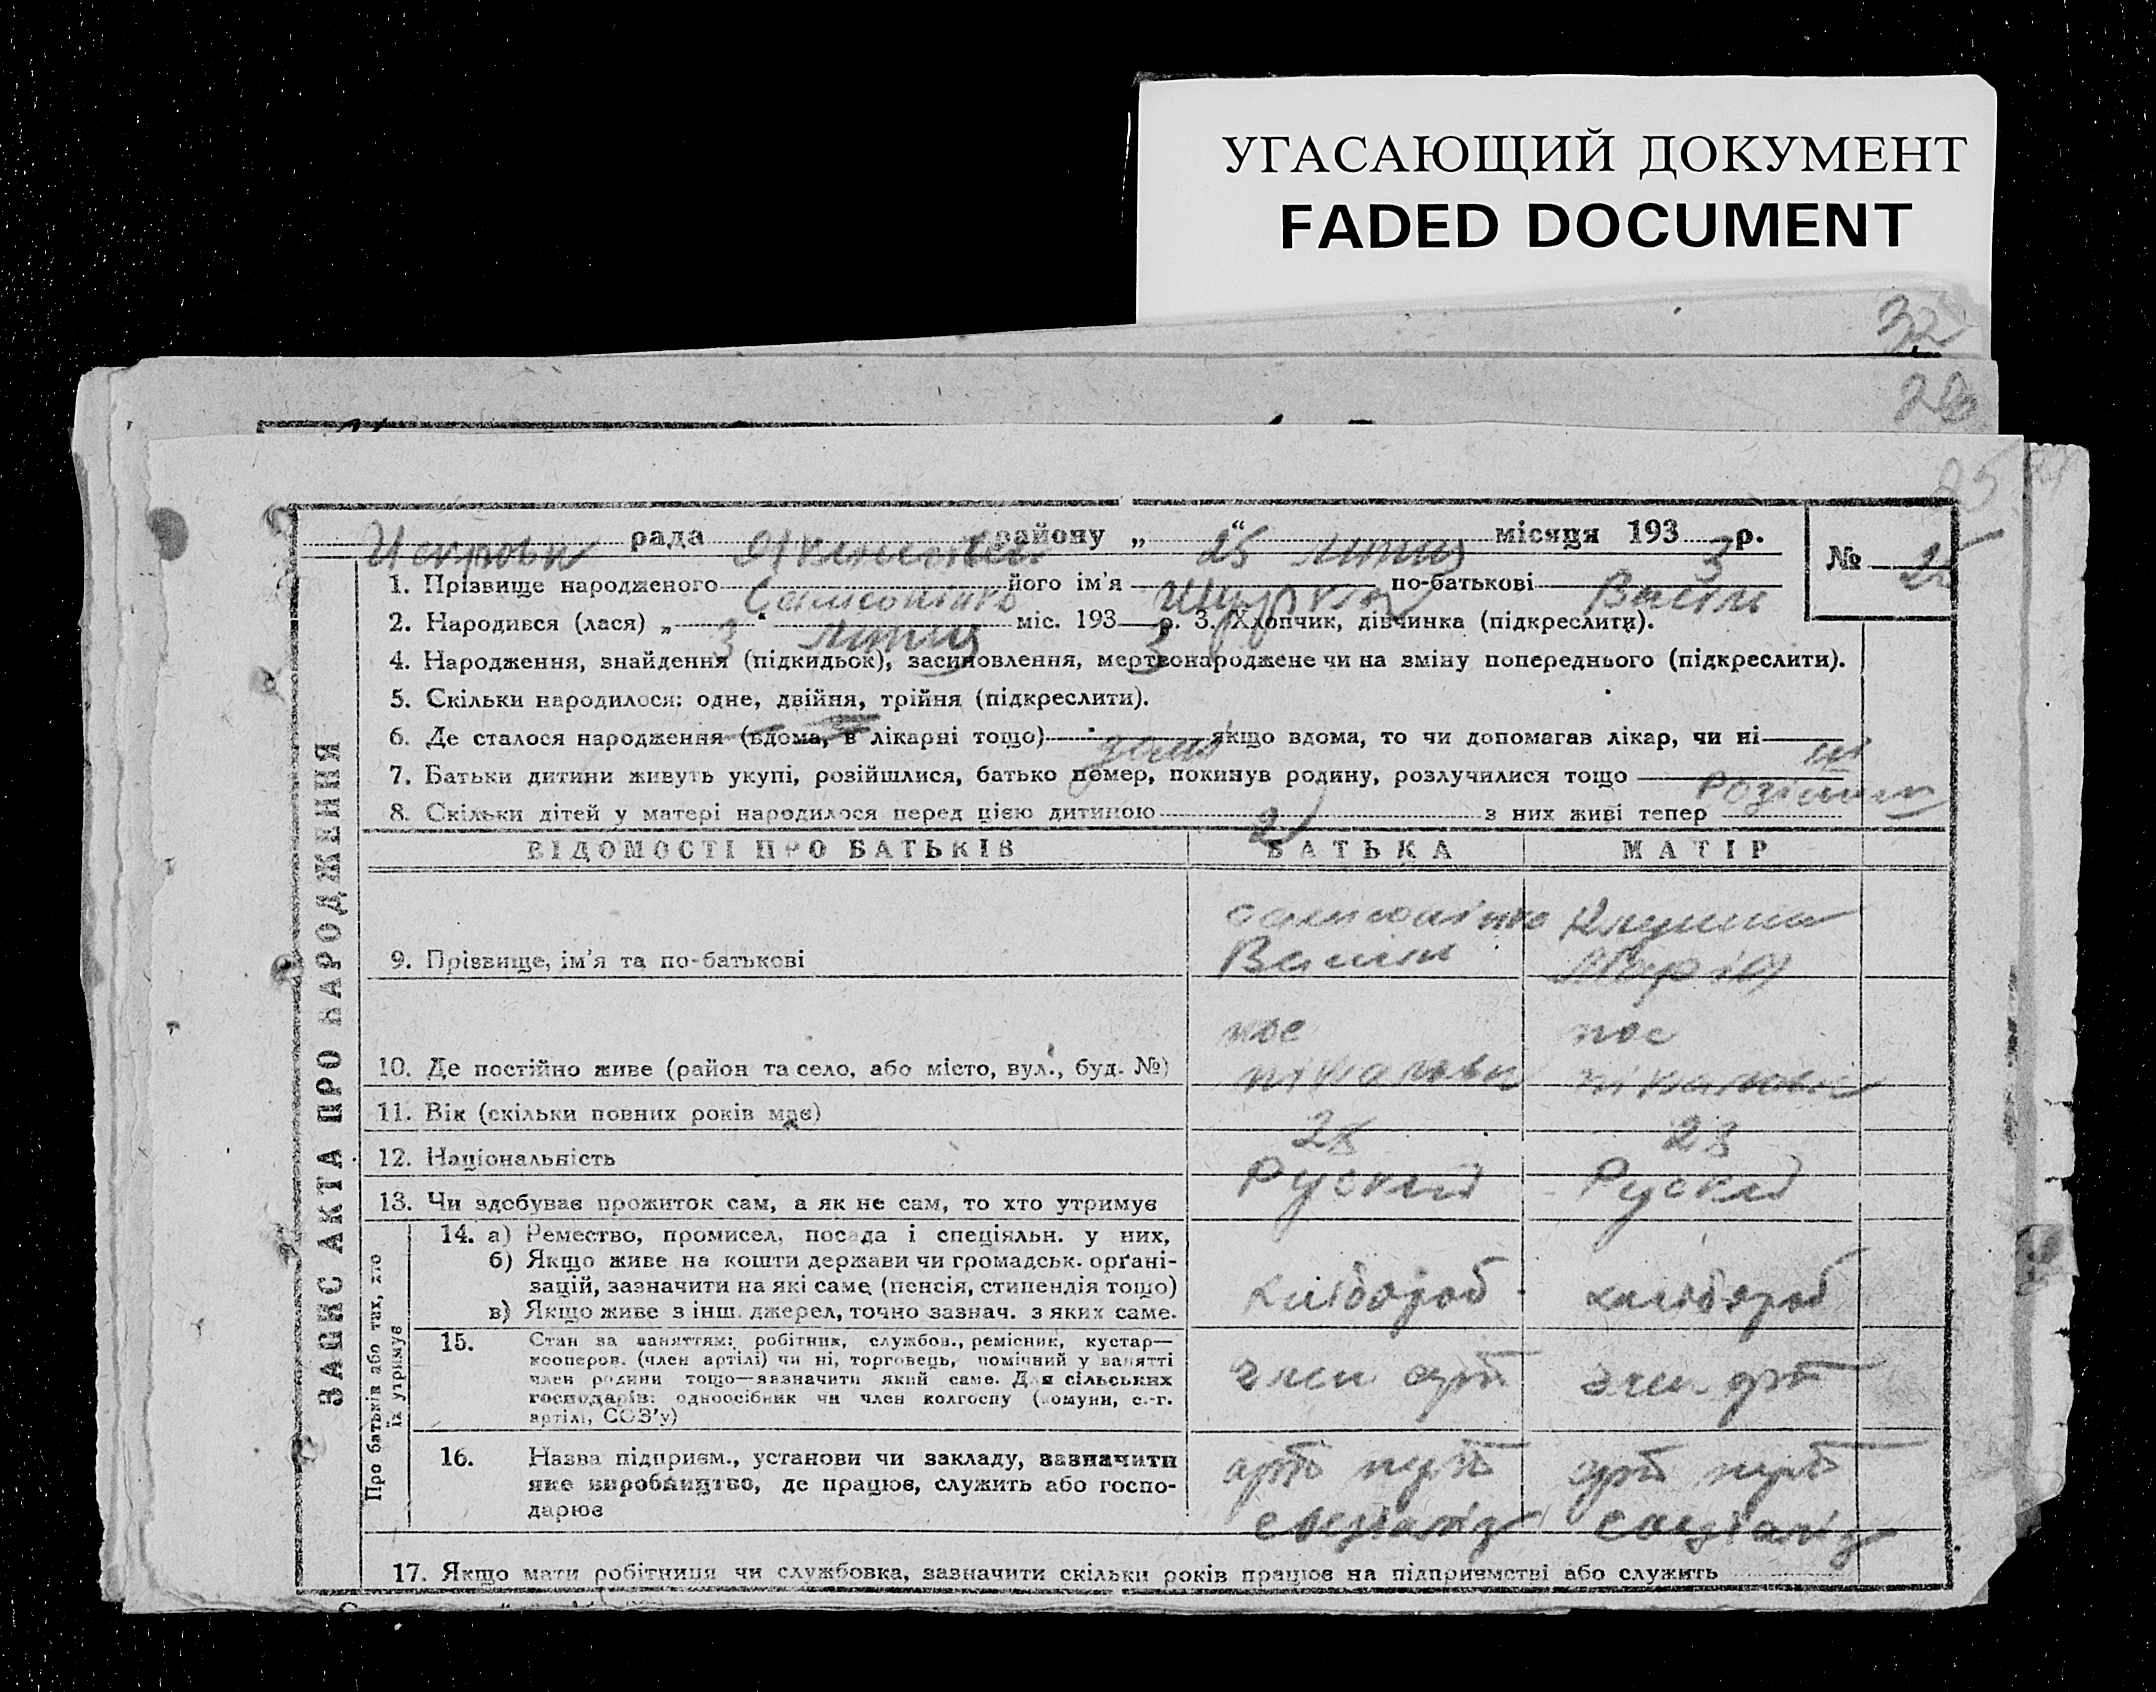 УГАСАЮЩИЙ ДОКУМЕНТ
FADED DOCUMENT
32
26
25
рада району „ 25 “ місяця 193 3 р.
№ 25
1. Прізвище народженого його ім'я Шурка по-батькові Василь
2. Народився (лася) „ 3 “ міс. 193 3 р. 3. Хлопчик, дівчинка (підкреслити).
4. Народження, знайдення (підкидьок), засиновлення, мертвонароджене чи на зміну попереднього (підкреслити).
5. Скільки народилося: одне, двійня, трійня (підкреслити).
6. Де сталося народження (вдома, в лікарні тощо) якщо вдома, то чи допомагав лікар, чи ні ні
7. Батьки дитини живуть укупі, розійшлися, батько помер, покинув родину, розлучилися тощо
8. Скільки дітей у матері народилося перед цією дитиною 2 з них живі тепер
ЗАПИС АКТА ПРО НАРОДЖЕННЯ
ВІДОМОСТІ ПРО БАТЬКІВ БАТЬКА МАТІР
9. Прізвище, ім'я та по-батькові Василь Марія
10. Де постійно живе (район та село, або місто, вул., буд. №) пос пос
11. Вік (скільки повних років має) 28 28
12. Національність Руский Руский
13. Чи здобуває прожиток сам, а як не сам, то хто утримує
Про батьків або тих, хто
їх утримує
14. а) Ремество, промисел, посада і спеціяльн. у них,
б) Якщо живе на кошти держави чи громадськ. орґані-
зацій, зазначити на які саме (пенсія, стипендія тощо)
в) Якщо живе з інш. джерел, точно зазнач. з яких саме.
хлібороб хлібороб
15. Стан за заняттям: робітник, службов., ремісник, кустар—
кооперов. (член артілі) чи ні, торговець, помічний у занятті
член родини тощо—зазначити який саме. Для сільських
господарів: одноосібник чи член колгоспу (комуни, с.-г.
артілі, СОЗ'у)
член арт член арт
16. Назва підприєм., установи чи закладу, зазначити
яке виробництво, де працює, служить або госпо-
дарює
арт арт
17. Якщо мати робітниця чи службовка, зазначити скільки років працює на підприємстві або служить